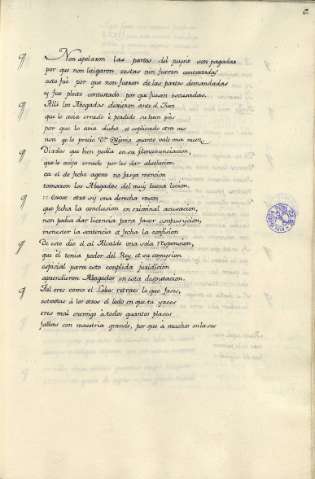 Non apelaron las partes del juysio son pagadas
por que non litigaron, costas nin fueron
esto fué por que non fueron de las partes demandadas
nj fue pleito contestado: por que fuesen
Alli los Abogados dixieron ante el Jues
que le avia errado é perdido su buen
por que lo avia dicho,
non ge lo preció Dn Ximio quanto vale una nues
Dixoles que bien podia en su pronunciacion
que le avya
ca el de fecho ageno no fasya mencion
tomaron los Abogados del muy buena licion
otra rason
que fecha la conclusion en criminal acusacion
non podia dar licencia para faser composycion
menester la sentencia es fecha la confesion
De esto dio el al Alcalde una sola responsion
que él tenia poder del Rey, et su comysion
especial para esto complida juridicion
aprendieron Abogados en esta disputacion
Tal eres como el Lobo: retraes lo que fases
estrañas á los otros el lodo en que tu yases
eres mal enemigo á todos quantos plases
fablas con maestria grande, por que a muchos enlases